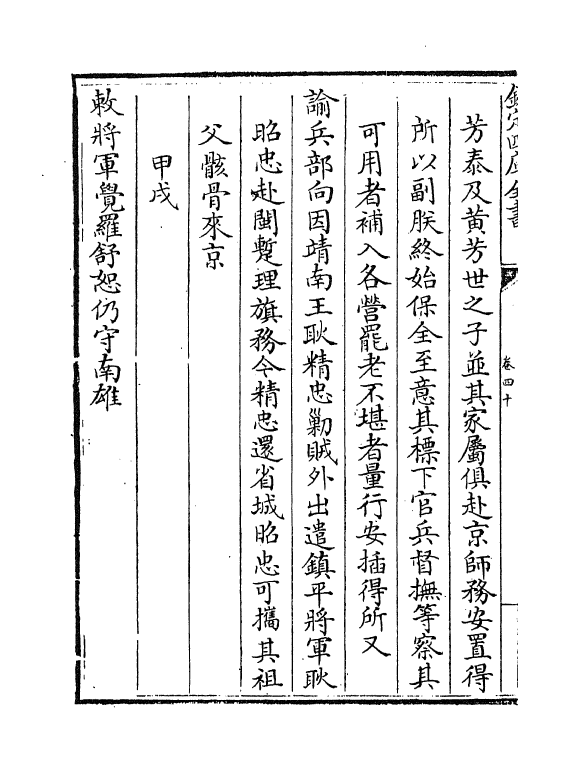 欽定四庫全書
卷四十
芳泰及黄芳世之子並其家屬俱赴京師務安置得
所以副朕終始保全至意其標下官兵督撫等察其
可用者補入各營罷老不堪者量行安插得所又
諭兵部向因靖南王耿精忠勦賊外出遣鎮平將軍耿
昭忠赴閩蹔理旗務今精忠還省城昭忠可攜其祖
父骸骨來京
甲戌
敕將軍覺羅舒恕仍守南雄